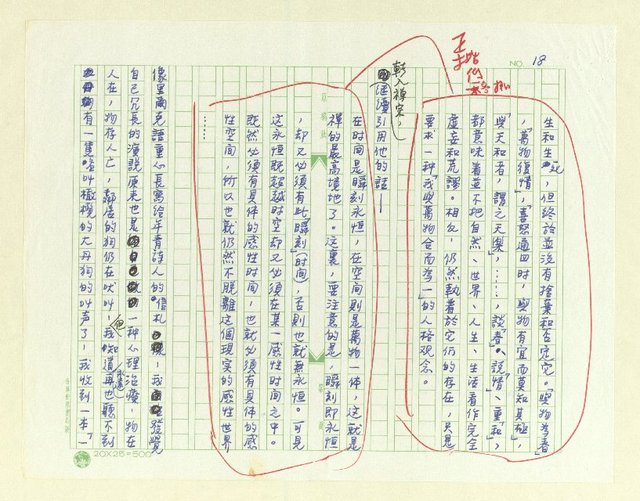 NO. 18
生和生死，但終於並沒有捨棄和否定它。「與物為春」
，「萬物復情」，「喜怒通四时，與物有宜而莫知其極」，
「與天和者，謂之天樂」，……，談「春」、說「情」、重「和」，
都意味着並不把自然、世界、人生、生活看作完全
虛妄和荒謬。相反，仍然執着於它们的存在，只是
要求一种「我與萬物合而為一」的人格观念。
轉入禪宗，
繼續引用他的話──
在时间是瞬刻永恒，在空间則是萬物一体，這就是
禪的最高境地了。這裏，要注意的是，瞬刻即永恒
，却又必須有此「瞬刻」（时间），否則也就無永恒。可見
這永恒既超越时空却又必須在某一感性时间之中。
既然必須有具体的感性时间，也就必須有具体的感
性空间，所以也就仍然不脫離這個現实的感性世界
……
像里爾克語重心長寫給年青詩人的「信札」，我發覺
自己冗長的演說原來也是一种心理治療，物在
人在，物存人亡，鄰居的狗仍在吠叫，但我知道再也聽不到
有一隻叫橄欖的大丹狗的叫声了，我收到一本「一
20X25=500